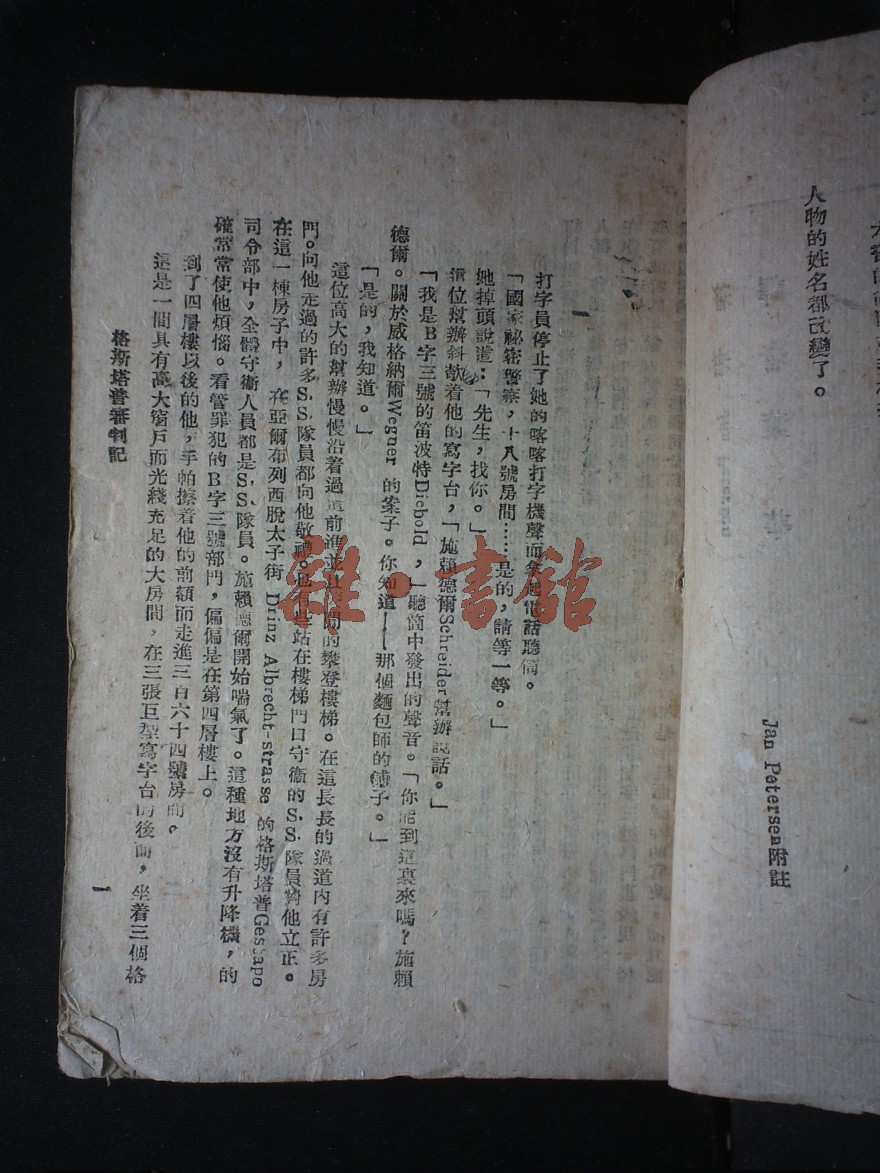 人物的姓名都改變了。
Jan Petersen附註
一
打字員停止了她的喀喀打字機聲而拿起電話聽筒。
「國家祕密警察，十八號房間……是的，請等一等。」
她掉頭說道：「先生，找你。」
這位幫辦斜執着他的寫字台，「施賴德爾Schreider幫辦說話。」
「我是B字三號的笛波特Diebold，」聽筒中發出的聲音。「你能到這裏來嗎？施賴
德爾。關於威格納爾Wegner 的案子。你知道——那個麵包師的鋪子。」
「是的，我知道。」
這位高大的幫辦慢慢沿着過道前進並且 的攀登樓梯。在這長長的過道內有許多房
門。向他走過的許多S.S.隊員都向他敬禮。也有些站在樓梯門口守衞的S.S.隊員對他立正。
在這一棟房子中，在亞爾布列西脫太子街 Drinz Albrecht-strasse 的格斯塔普Gestapo
司令部中，全體守衞人員都是S.S.隊員。施賴德爾開始喘氣了。這種地方沒有升降機，的
確常常使他煩惱。看管罪犯的B字三號部門，偏偏是在第四層樓上。
到了四層樓以後的他，手帕擦着他的前額而走進三百六十四號房間。
這是一間具有高大窗戶而光綫充足的大房間，在三張巨型寫字台的後面，坐着三個格
格斯塔普審判記
一
雜·書館